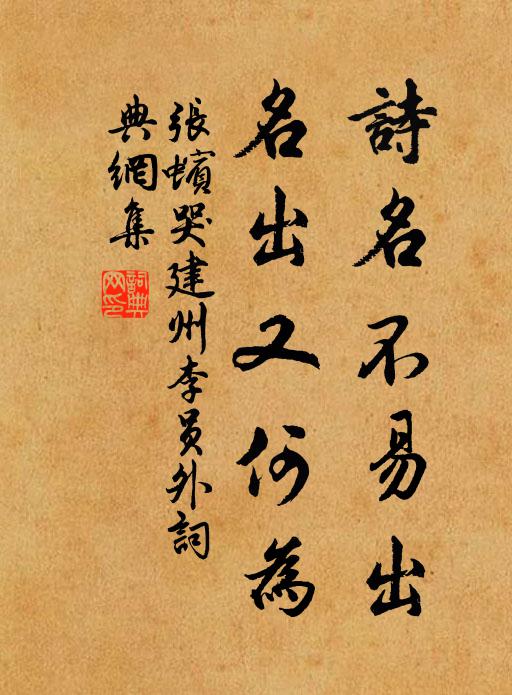 詩名不易出
名出又何為
張蠙哭建州李員外詞
典網集
詞典网印